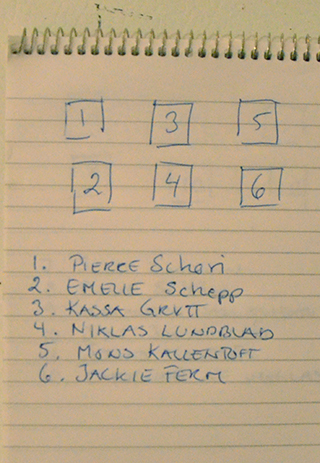 1 3 5
2 4 6
1. PIERRE Schori
2. EMELIE Schepp
3. KASSA GRYTT
4. NIKLAS LUNDBLAD
5. MONS KALLENTOFT
6. JACKIE FERM